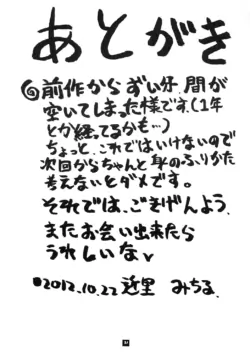 あとがき
前作からずい分、間が
空いてしまった様です。(1年
とか経ってるかも…)
ちょっと、これではいけないので
次回からちゃんと身のふりかた
考えないとダメです。
それでは、ごきげんよう。
またお会い出来たら
うれしいな
2012.10.22 近里 みちる